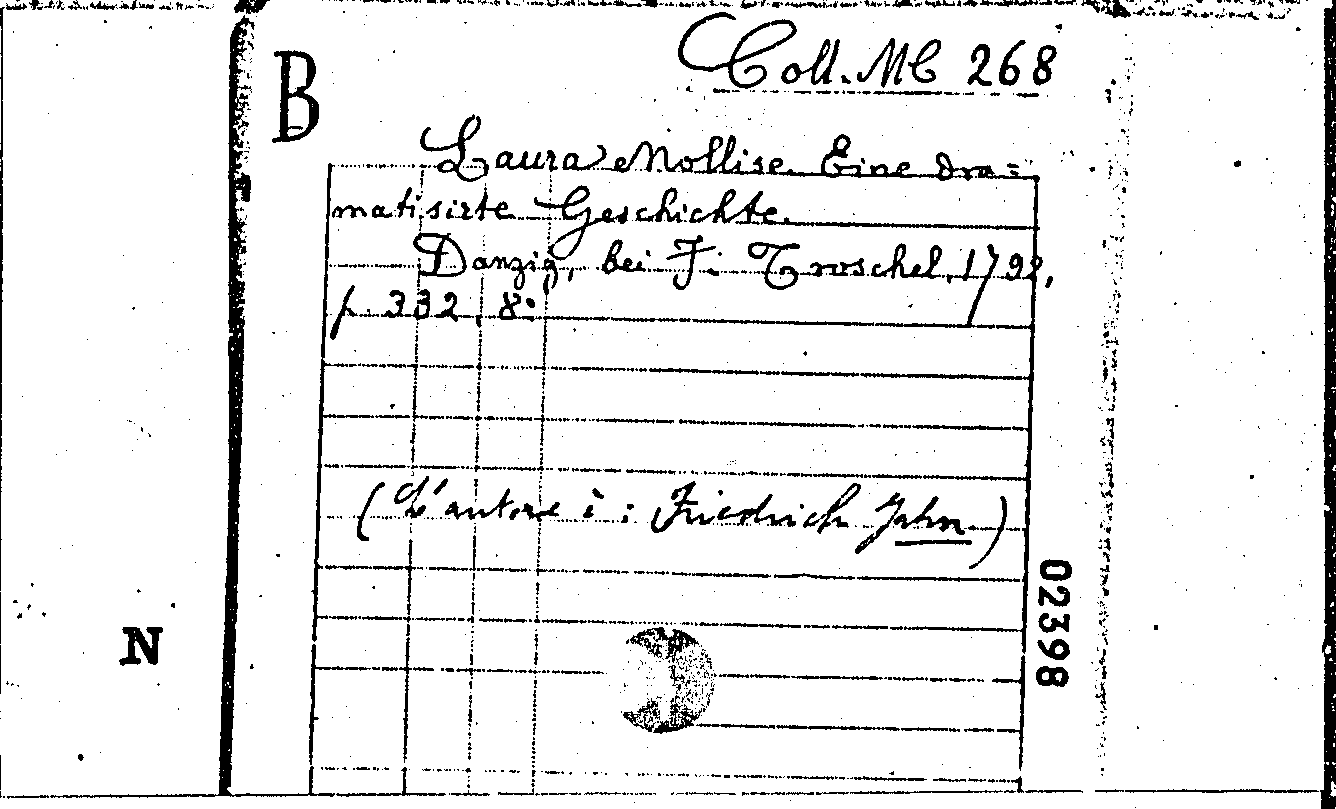 Coll. MC 268
B
Laura Mollise. Eine dra=
matisirte Geschichte.
Danzig, bei F. Troschel, 1792,
p. 332, 8:
(L'autore è: Friedrich Jahn.)
02398
N